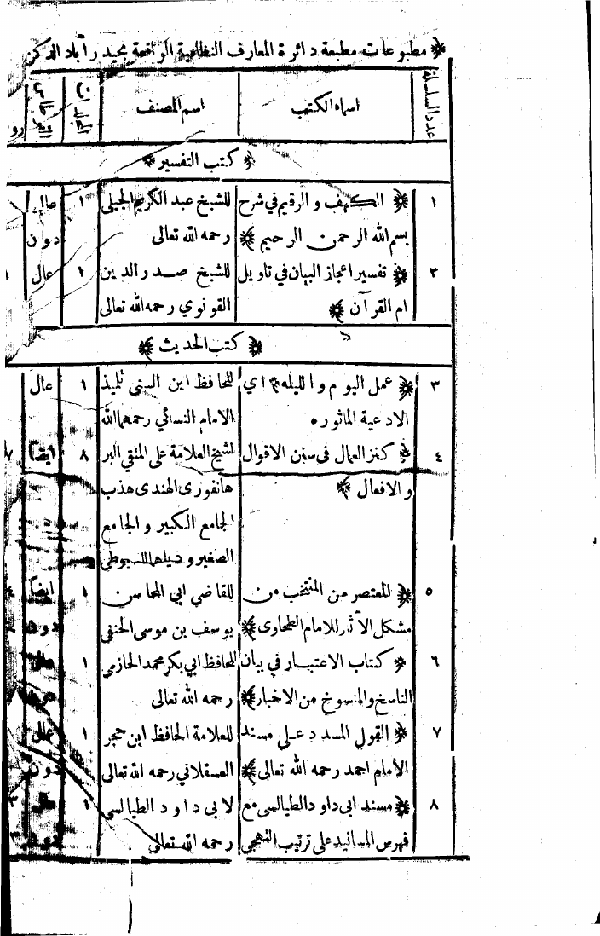 مطبوعات مطبعة دائرة المعارف النظامية الواقعة بحيدرآباد الدكن
عدد السلسلة اسماء الكتب اسم المصنف
كتب التفسير
١ الكهف و الرقيم في شرح للشيخ عبد الكريم الجيلى ١
بسم الله الرحمن الرحيم رحمه الله تعالى دون
٢ تفسير اعجاز البيان في تاويل للشيخ صدر الدين ١ عال
ام القرآن القونوي رحمه الله تعالى
كتب الحديث
٣ عمل اليوم و الليله اي للحافظ ابن السنى تلميذ ١ عال
الادعية الماثوره الامام النسائي رحمهما الله
٤ كنز العمال فى سنن الاقوال لشيخ العلامة على المتقي البر ٨ ايضا ٧
و الافعال هانفوري الهندى هذب
الجامع الكبير و الجامع
الصغير و ذيلها للسيوطى
٥ المعتصر من المنتخب من للقاضي ابي المحاسن ١ ايضا
مشكل الآثار للامام الطحاوى يوسف بن موسى الحنفى دون
٦ كتاب الاعتبار في بيان للحافظ ابي بكر محمد الحازمي ١
الناسخ والمنسوخ من الاخبار رحمه الله تعالى
٧ القول المسدد على مسند للعلامة الحافظ ابن حجر ١ عال
الامام احمد رحمه الله تعالى العسقلاني رحمه الله تعالى دون
٨ مسند ابى داود الطيالسى مع لابى داود الطيالسى ١
فهرس المسانيد على ترتيب التهجي رحمه الله تعالى